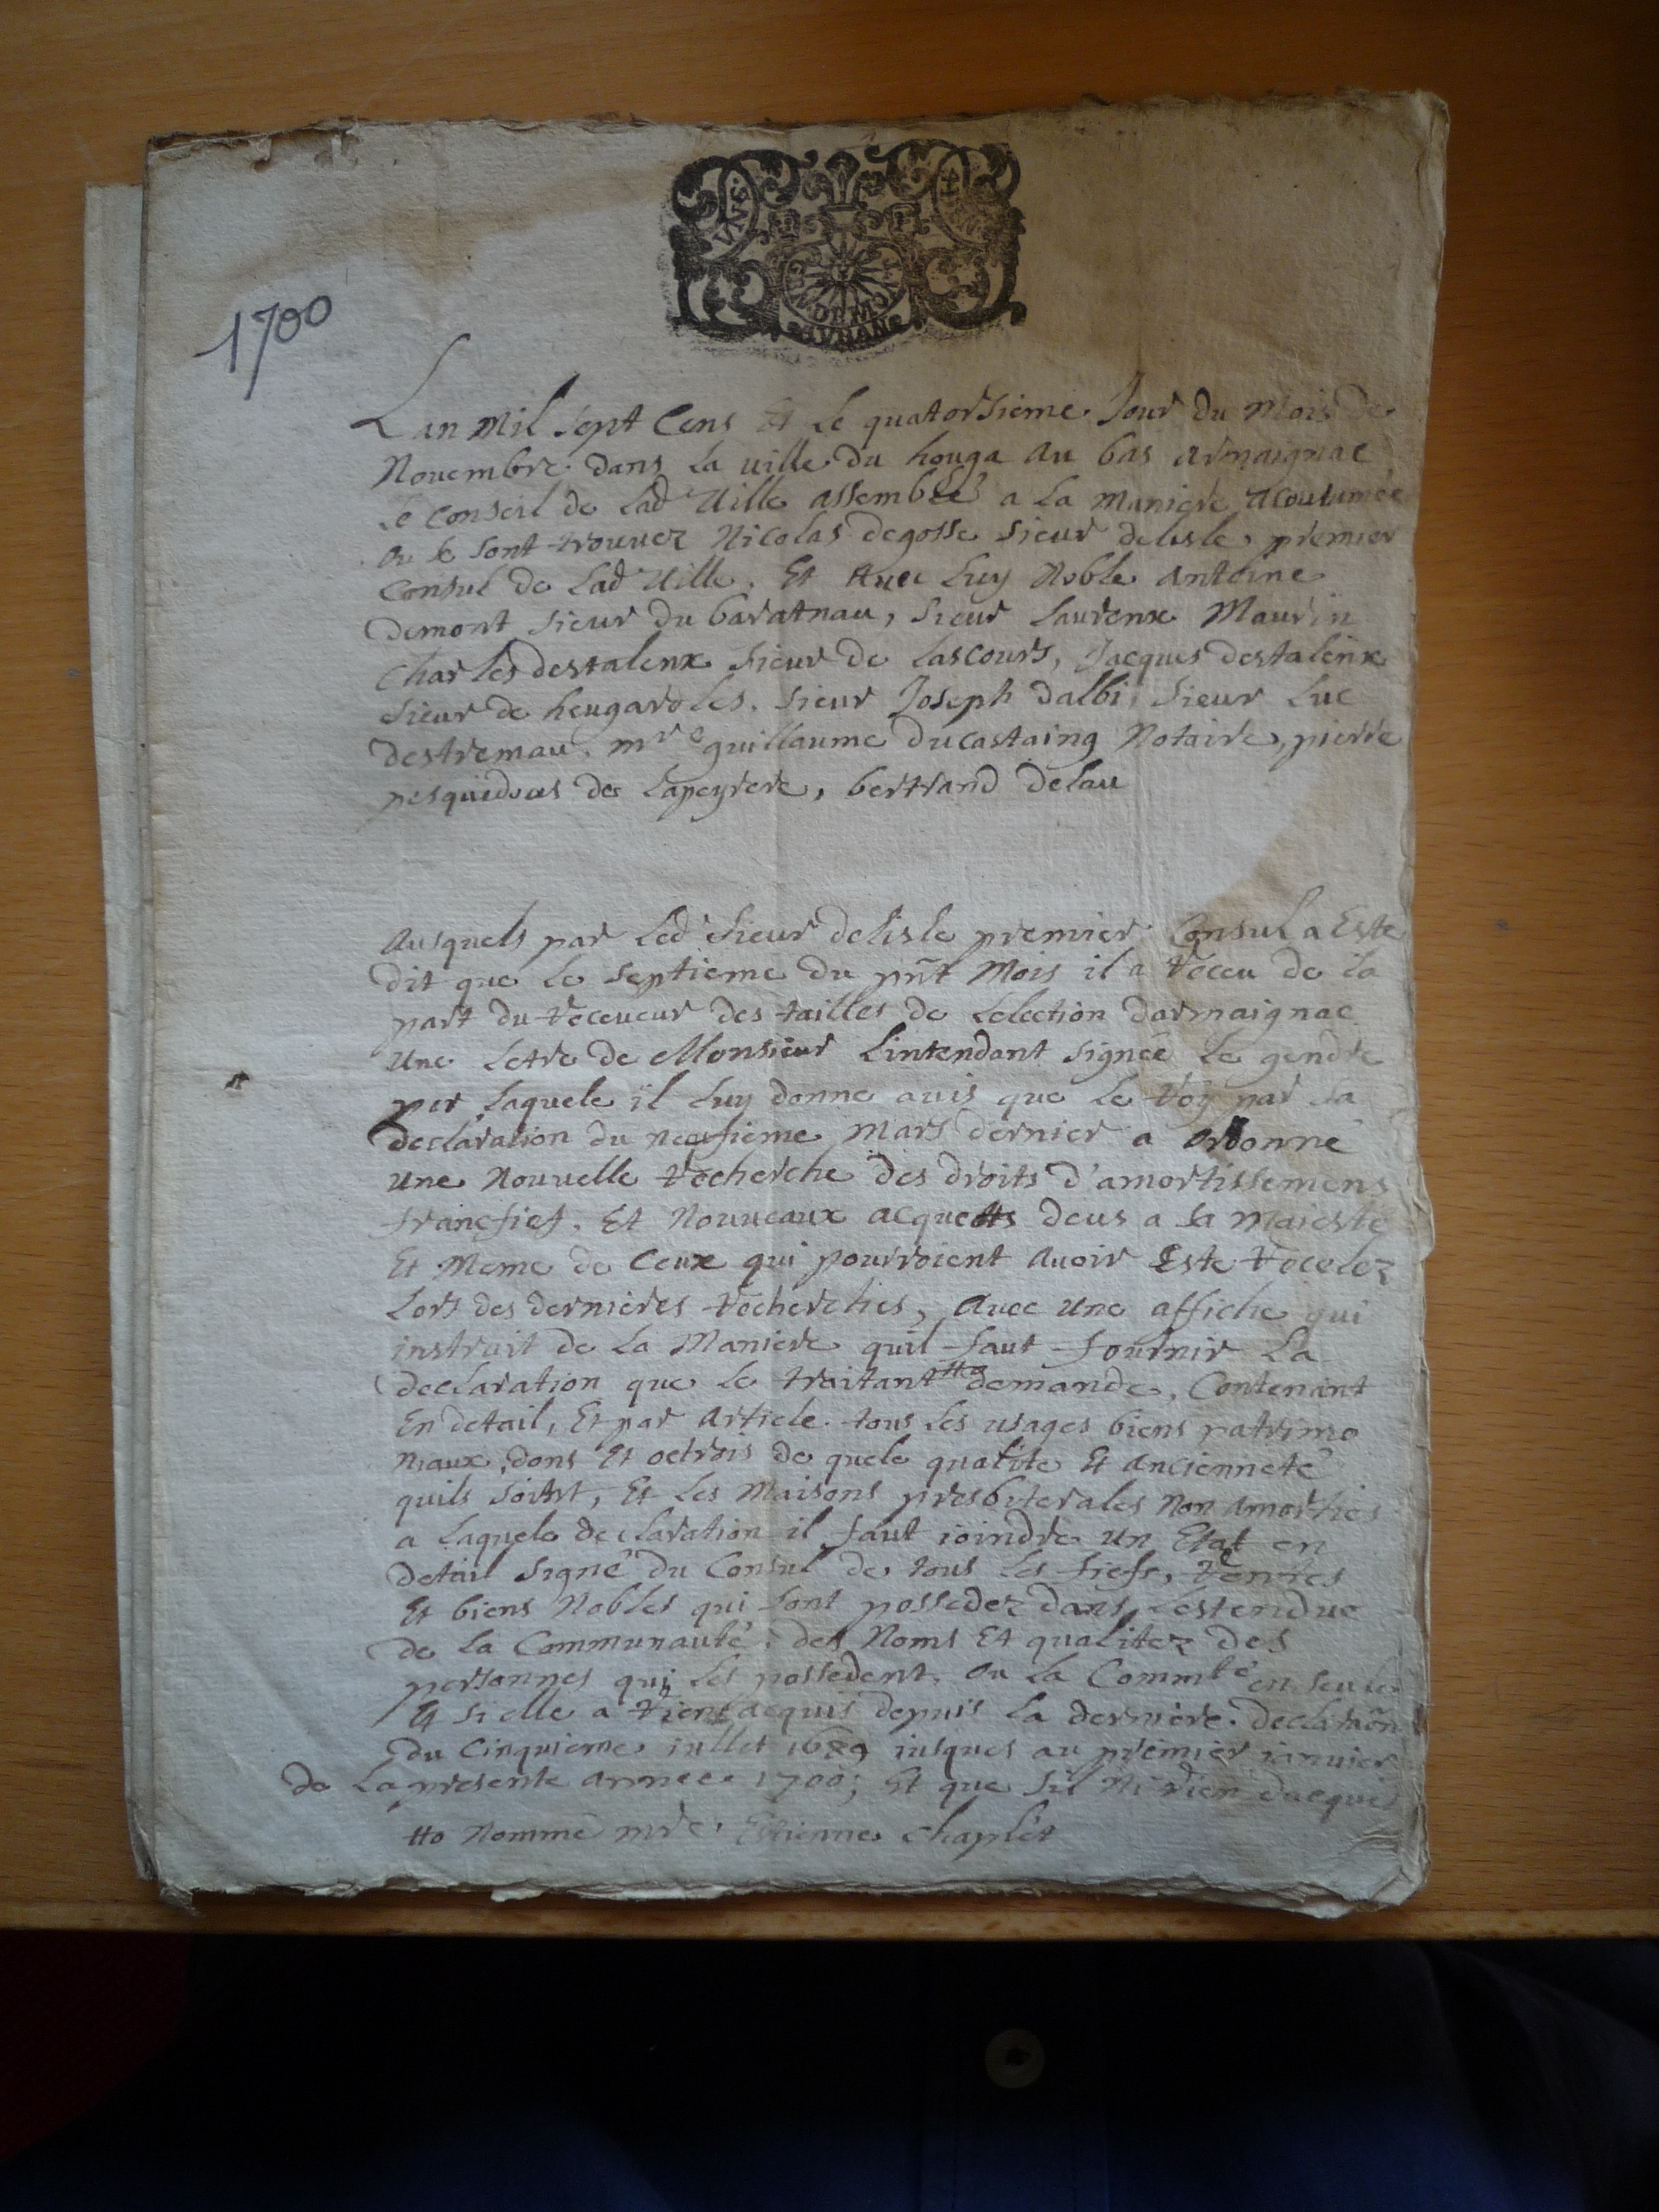 1700
Lan Mil sept Cens Et le quatorsieme Jour du Mois de
Novembre dans la ville du houga au bas armaignac
le conseil de lad Ville assemblée a la maniere acoutumée
ou se sont trouvez Nicolas degosse sieur delisle premier
consul de lad Ville, Et Avec luy Noble antoine
demont sieur du baratnau, sieur laurenx Maurin
charles destalenx sieur de lascours, Jacques destalenx
sieur de heugaroles, sieur Joseph dalbi, sieur luc
destremau, mre guillaume ducastaing Notaire, pierre
pesquidous de lapeyrere, bertrand delau
Ausquels par led sieur delisle premier Consul a Este
dit que le septieme du pñt Mois il a receu de la
part du receveur des tailles de Lelection darmaignac
une letre de Monsieur Lintendant signée le gendre
par laquele il luy donne avis que le roy par sa
declaration du neufieme mars dernier a ordonné
une Nouvelle recherche des droits d'amortissemens
francfief, Et Nouveaux acquetts deus a sa Majesté
Et Meme de Ceux qui pourroient avoir Esté recelez
lors des dernieres recherches, avec une affiche qui
instruit de la Maniere quil faut fournir La
declaration que le traitant tto demande, Contenant
En detail, Et par article tous les usages biens patrimo
niaux, dons Et octrois de quele qualite Et ancienneté
quils soint, Et les Maisons presbiterales Non amorties
a laquele declaration il faut joindre un Etat en
detail signé du Consul de tous les fiefs, rentes
Et biens Nobles qui sont possedez dans lestendue
de la Communauté, des Noms Et qualitez des
personnes qui les possedent, ou la Commté en seule
Et si elle a rien acquis depuis la derniere declaraõn
du Cinquieme jullet 1689 jusques au premier janvier
de la presente annee 1700; Et que sil Ni rien dacquis
tto Nommé mre Estienne chaplet